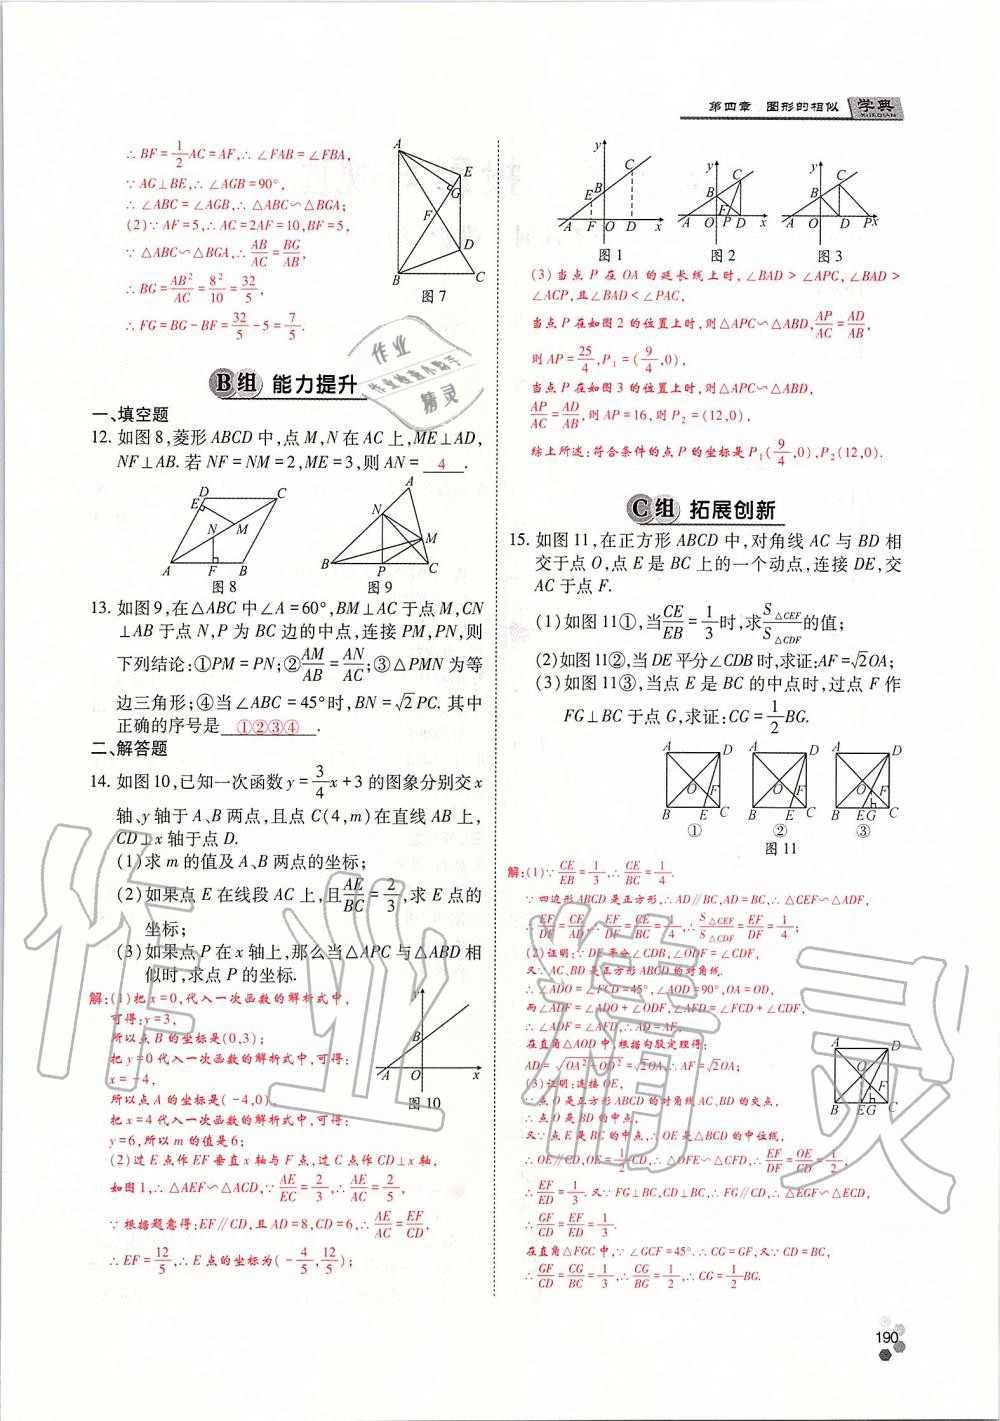 第四章 图形的相似 学典
XUEDIAN
∴BF=1/2AC=AF,∴∠FAB=∠FBA,
∵AG⊥BE,∴∠AGB=90°,
∴∠ABC=∠AGB,∴△ABC∽△BGA;
(2)∵AF=5,∴AC=2AF=10,BF=5,
∵△ABC∽△BGA,∴AB/AC=BG/AB,
∴BG=AB²/AC=8²/10=32/5,
∴FG=BG-BF=32/5-5=7/5.
A
E
G
F
D
B
C
图7
B组 能力提升
一、填空题
12. 如图8,菱形ABCD中,点M,N在AC上,ME⊥AD,
NF⊥AB.若NF=NM=2,ME=3,则AN= 4 .
D C E N M A F B
图8
A N M B P C
图9
13. 如图9,在△ABC中∠A=60°,BM⊥AC于点M,CN
⊥AB于点N,P为BC边的中点,连接PM,PN,则
下列结论:①PM=PN;②AM/AB=AN/AC;③△PMN为等
边三角形;④当∠ABC=45°时,BN=√2PC.其中
正确的序号是 ①②③④ .
二、解答题
14. 如图10,已知一次函数y=3/4x+3的图象分别交x
轴、y轴于A、B两点,且点C(4,m)在直线AB上,
CD⊥x轴于点D.
(1)求m的值及A、B两点的坐标;
(2)如果点E在线段AC上,且AE/BC=2/3,求E点的
坐标;
(3)如果点P在x轴上,那么当△APC与△ABD相
似时,求点P的坐标.
解:(1)把x=0,代入一次函数的解析式中,
可得:y=3,
所以点B的坐标是(0,3);
把y=0代入一次函数的解析式中,可得:
x=-4,
所以点A的坐标是(-4,0),
把x=4代入一次函数的解析式中,可得:
y=6,所以m的值是6;
y
B
A O x
图10
(2)过E点作EF垂直x轴与F点,过C点作CD⊥x轴,
如图1,∴△AEF∽△ACD,∵AE/EC=2/3,∴AE/AC=2/5,
∵根据题意得:EF∥CD,且AD=8,CD=6,∴AE/AC=EF/CD,
∴EF=12/5,∴E点的坐标为(-4/5,12/5);
y C E B A F O D x
图1
y C B A F P D x
图2
y C B A O D P x
图3
(3)当点P在OA的延长线上时,∠BAD>∠APC,∠BAD>
∠ACP,且∠BAD<∠PAC,
当点P在如图2的位置上时,则△APC∽△ABD,AP/AC=AD/AB,
则AP=25/4,P₁=(9/4,0),
当点P在如图3的位置上时,则△APC∽△ABD,
AP/AC=AD/AB,则AP=16,则P₂=(12,0),
综上所述:符合条件的点P的坐标是P₁(9/4,0),P₂(12,0).
C组 拓展创新
15. 如图11,在正方形ABCD中,对角线AC与BD相
交于点O,点E是BC上的一个动点,连接DE,交
AC于点F.
(1)如图11①,当CE/EB=1/3时,求S△CEF/S△CDF的值;
(2)如图11②,当DE平分∠CDB时,求证:AF=√2OA;
(3)如图11③,当点E是BC的中点时,过点F作
FG⊥BC于点G,求证:CG=1/2BG.
A D O F B E C
①
A D O F B E C
②
A D O F B E G C
③
图11
解:(1)∵CE/EB=1/3,∴CE/BC=1/4.
∵四边形ABCD是正方形,∴AD∥BC,AD=BC,∴△CEF∽△ADF,
∴EF/DF=CE/AD,∴EF/DF=CE/BC=1/4,∴S△CEF/S△CDF=EF/DF=1/4;
(2)证明:∵DE平分∠CDB,∠ODF=∠CDF,
又∵AC、BD是正方形ABCD的对角线.
∴∠ADO=∠FCD=45°,∠AOD=90°,OA=OD,
而∠ADF=∠ADO+∠ODF,∠AFD=∠FCD+∠CDF,
∴∠ADF=∠AFD,∴AD=AF,
在直角△AOD中,根据勾股定理得:
AD=√OA²+OD²=√2OA,∴AF=√2OA;
(3)证明:连接OE,
∵点O是正方形ABCD的对角线AC、BD的交点,
∴点O是BD的中点,
又∵点E是BC的中点,∴OE是△BCD的中位线,
∴OE∥CD,OE=1/2CD,∴△OFE∽△CFD,∴EF/DF=OE/CD=1/2,
∴EF/ED=1/3.又∵FG⊥BC,CD⊥BC,∴FG∥CD,∴△EGF∽△ECD,
∴GF/CD=EF/ED=1/3.
在直角△FGC中,∵∠GCF=45°.∴CG=GF,又∵CD=BC,
∴GF/CD=CG/BC=1/3,∴CG/BG=1/2,∴CG=1/2BG.
A D O F B E G C
190
作业精灵
作业
作业检查小帮手
精灵